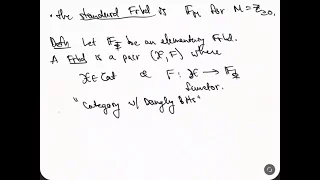 • the standard Frbd is 𝔽_M for M = ℤ≥0.
Defn. Let 𝔽_Φ be an elementary Frbd.
A Frbd is a pair (𝒳, F) where
𝒳 ∈ Cat & F : 𝒳 → 𝔽_Φ
functor.
"Category w/ Dangly Bits"